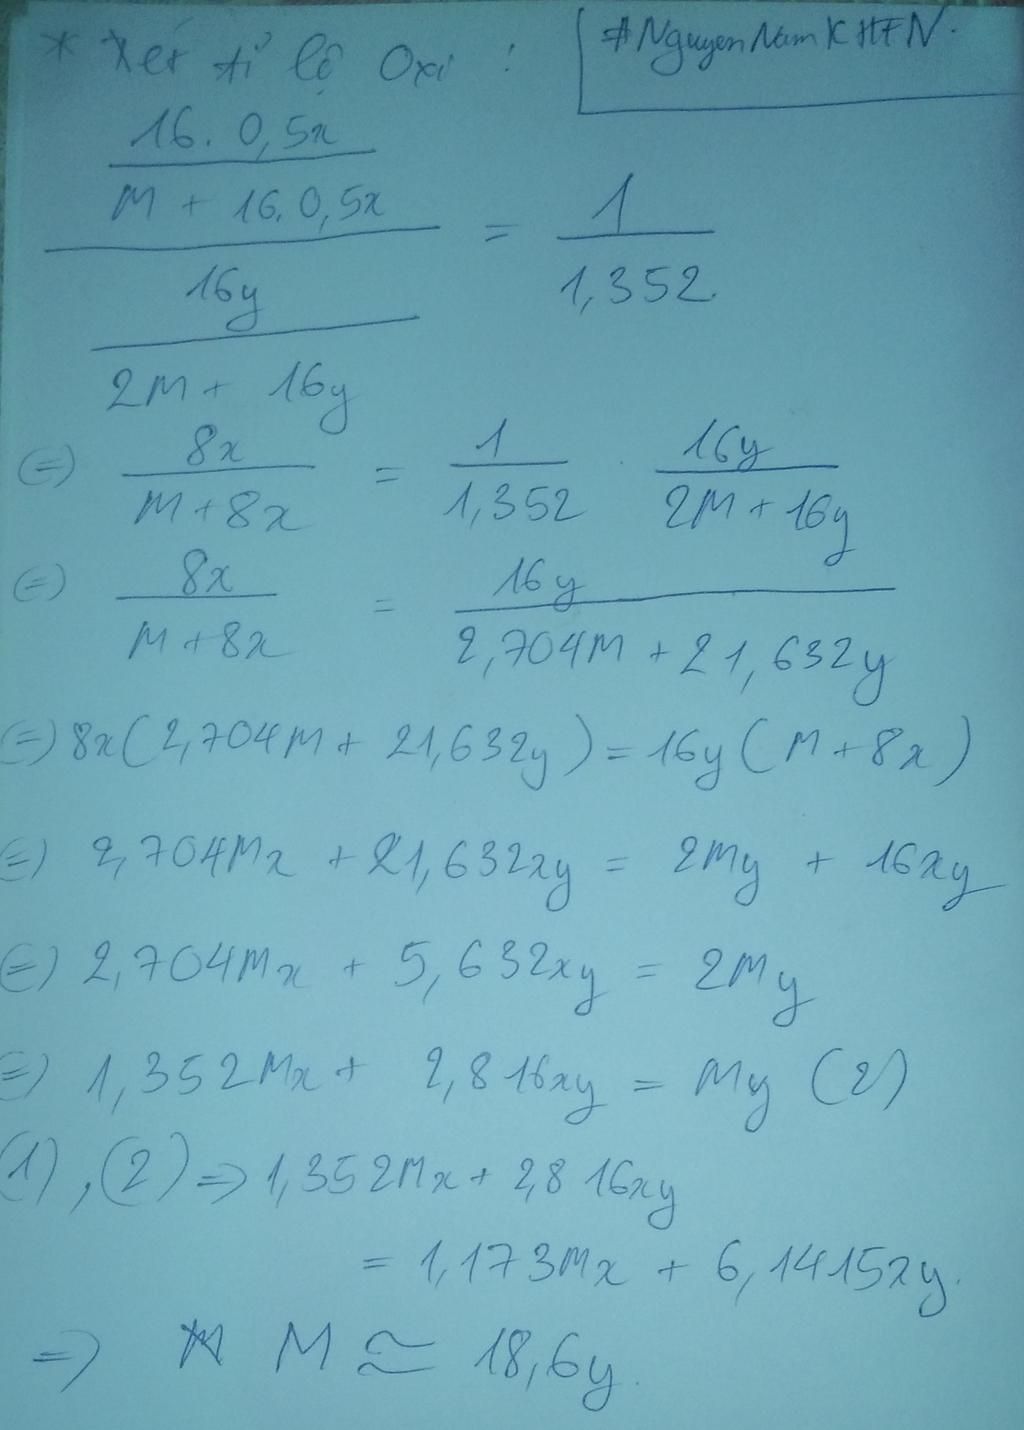 * Xét tỉ lệ Oxi :
#NguyenNamKHTN.
16. 0,5x
M + 16.0,5x
= 1
1,352.
16y
2M + 16y
(=) 8x = 1 . 16y
M+8x 1,352 2M+16y
(=) 8x = 16y
M+8x 2,704M + 21,632y
(=) 8x(2,704M + 21,632y) = 16y(M+8x)
(=) 2,704Mx + 21,632xy = 2My + 16xy
(=) 2,704Mx + 5,632xy = 2My
(=) 1,352Mx + 2,816xy = My (2)
(1), (2) => 1,352Mx + 2,816xy
= 1,173Mx + 6,1415xy.
=> M ≅ 18,6y.